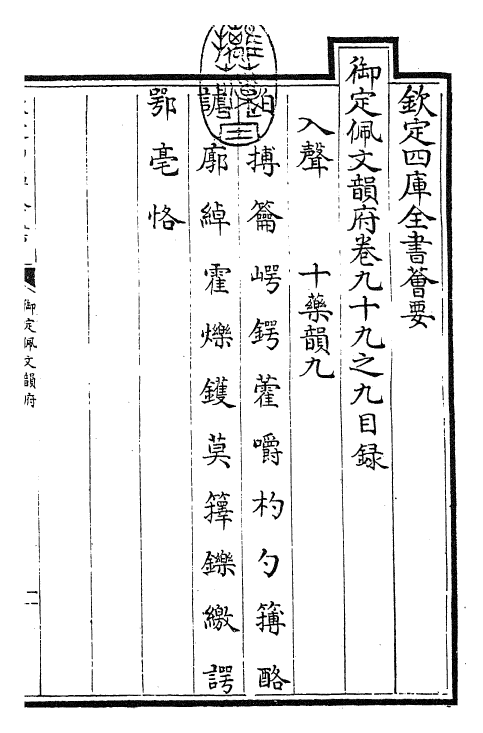 欽定四庫全書薈要
御定佩文韻府卷九十九之九目録
入聲 十藥韻九
搏籥崿鍔藿嚼杓勺簿酪
廓綽霍爍鑊莫籜鑠繳諤
鄂亳恪
御定佩文韻府